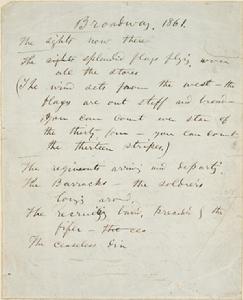 Broadway, 1861.
The sights now there
The sights splendid flags flying over
all the stores
(The wind sets from the west — the
flags are out stiff and broad —
you can count every star of
the thirty four — you can count
the thirteen stripes.)
The regiments arriving and departing,
The Barracks — the soldiers
lounging around,
The recruiting band, preceded by the
fifer —
The ceaseless din